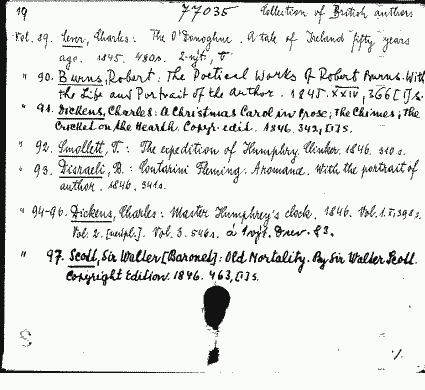 19 77035 Collection of British authors
Vol. 89. Lever, Charles: The O'Donoghue. A tale of Ireland fifty years
ago. 1845. 480 s.
" 90. Burns, Robert: The Poetical Works of Robert Burns. With
the Life and Portrait of the Author. 1845. XXIV, 366 [1] s.
" 91. Dickens, Charles: A Christmas Carol in Prose; The Chimes; The
Cricket on the Hearth. Copyr. edit. 1846. 342, [1] s.
" 92. Smollett, T.: The expedition of Humphry Clinker. 1846. 310 s.
" 93. Disraeli, B.: Contarini Fleming. A romance. With the portrait of
author. 1846. 341 s.
" 94-96. Dickens, Charles: Master Humphrey's clock. 1846. Vol. 1.
Vol. 2. Vol. 3. 546 s.
" 97. Scott, Sir Walter [Baronet]: Old Mortality. By Sir Walter Scott.
Copyright Edition. 1846. 463, [1] s.